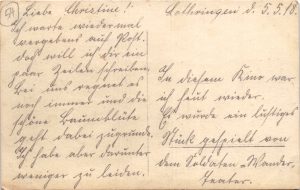 54
Liebe Chrestine!
Ich warte wieder mal
vergebens auf Post.
daß will ich dir ein
paar Zeilen schreiben.
Bei uns regnet es
noch immer und die
schöne Baumblüte
geht dabei zugrunde.
Ich habe aber darunter
weniger zu leiden.
Lothringen d. 5.5.18.
In diesem Kino war
ich heut wieder.
Es wurde ein lustiges
Stück gespielt von
dem Soldaten-Wander-
teater.